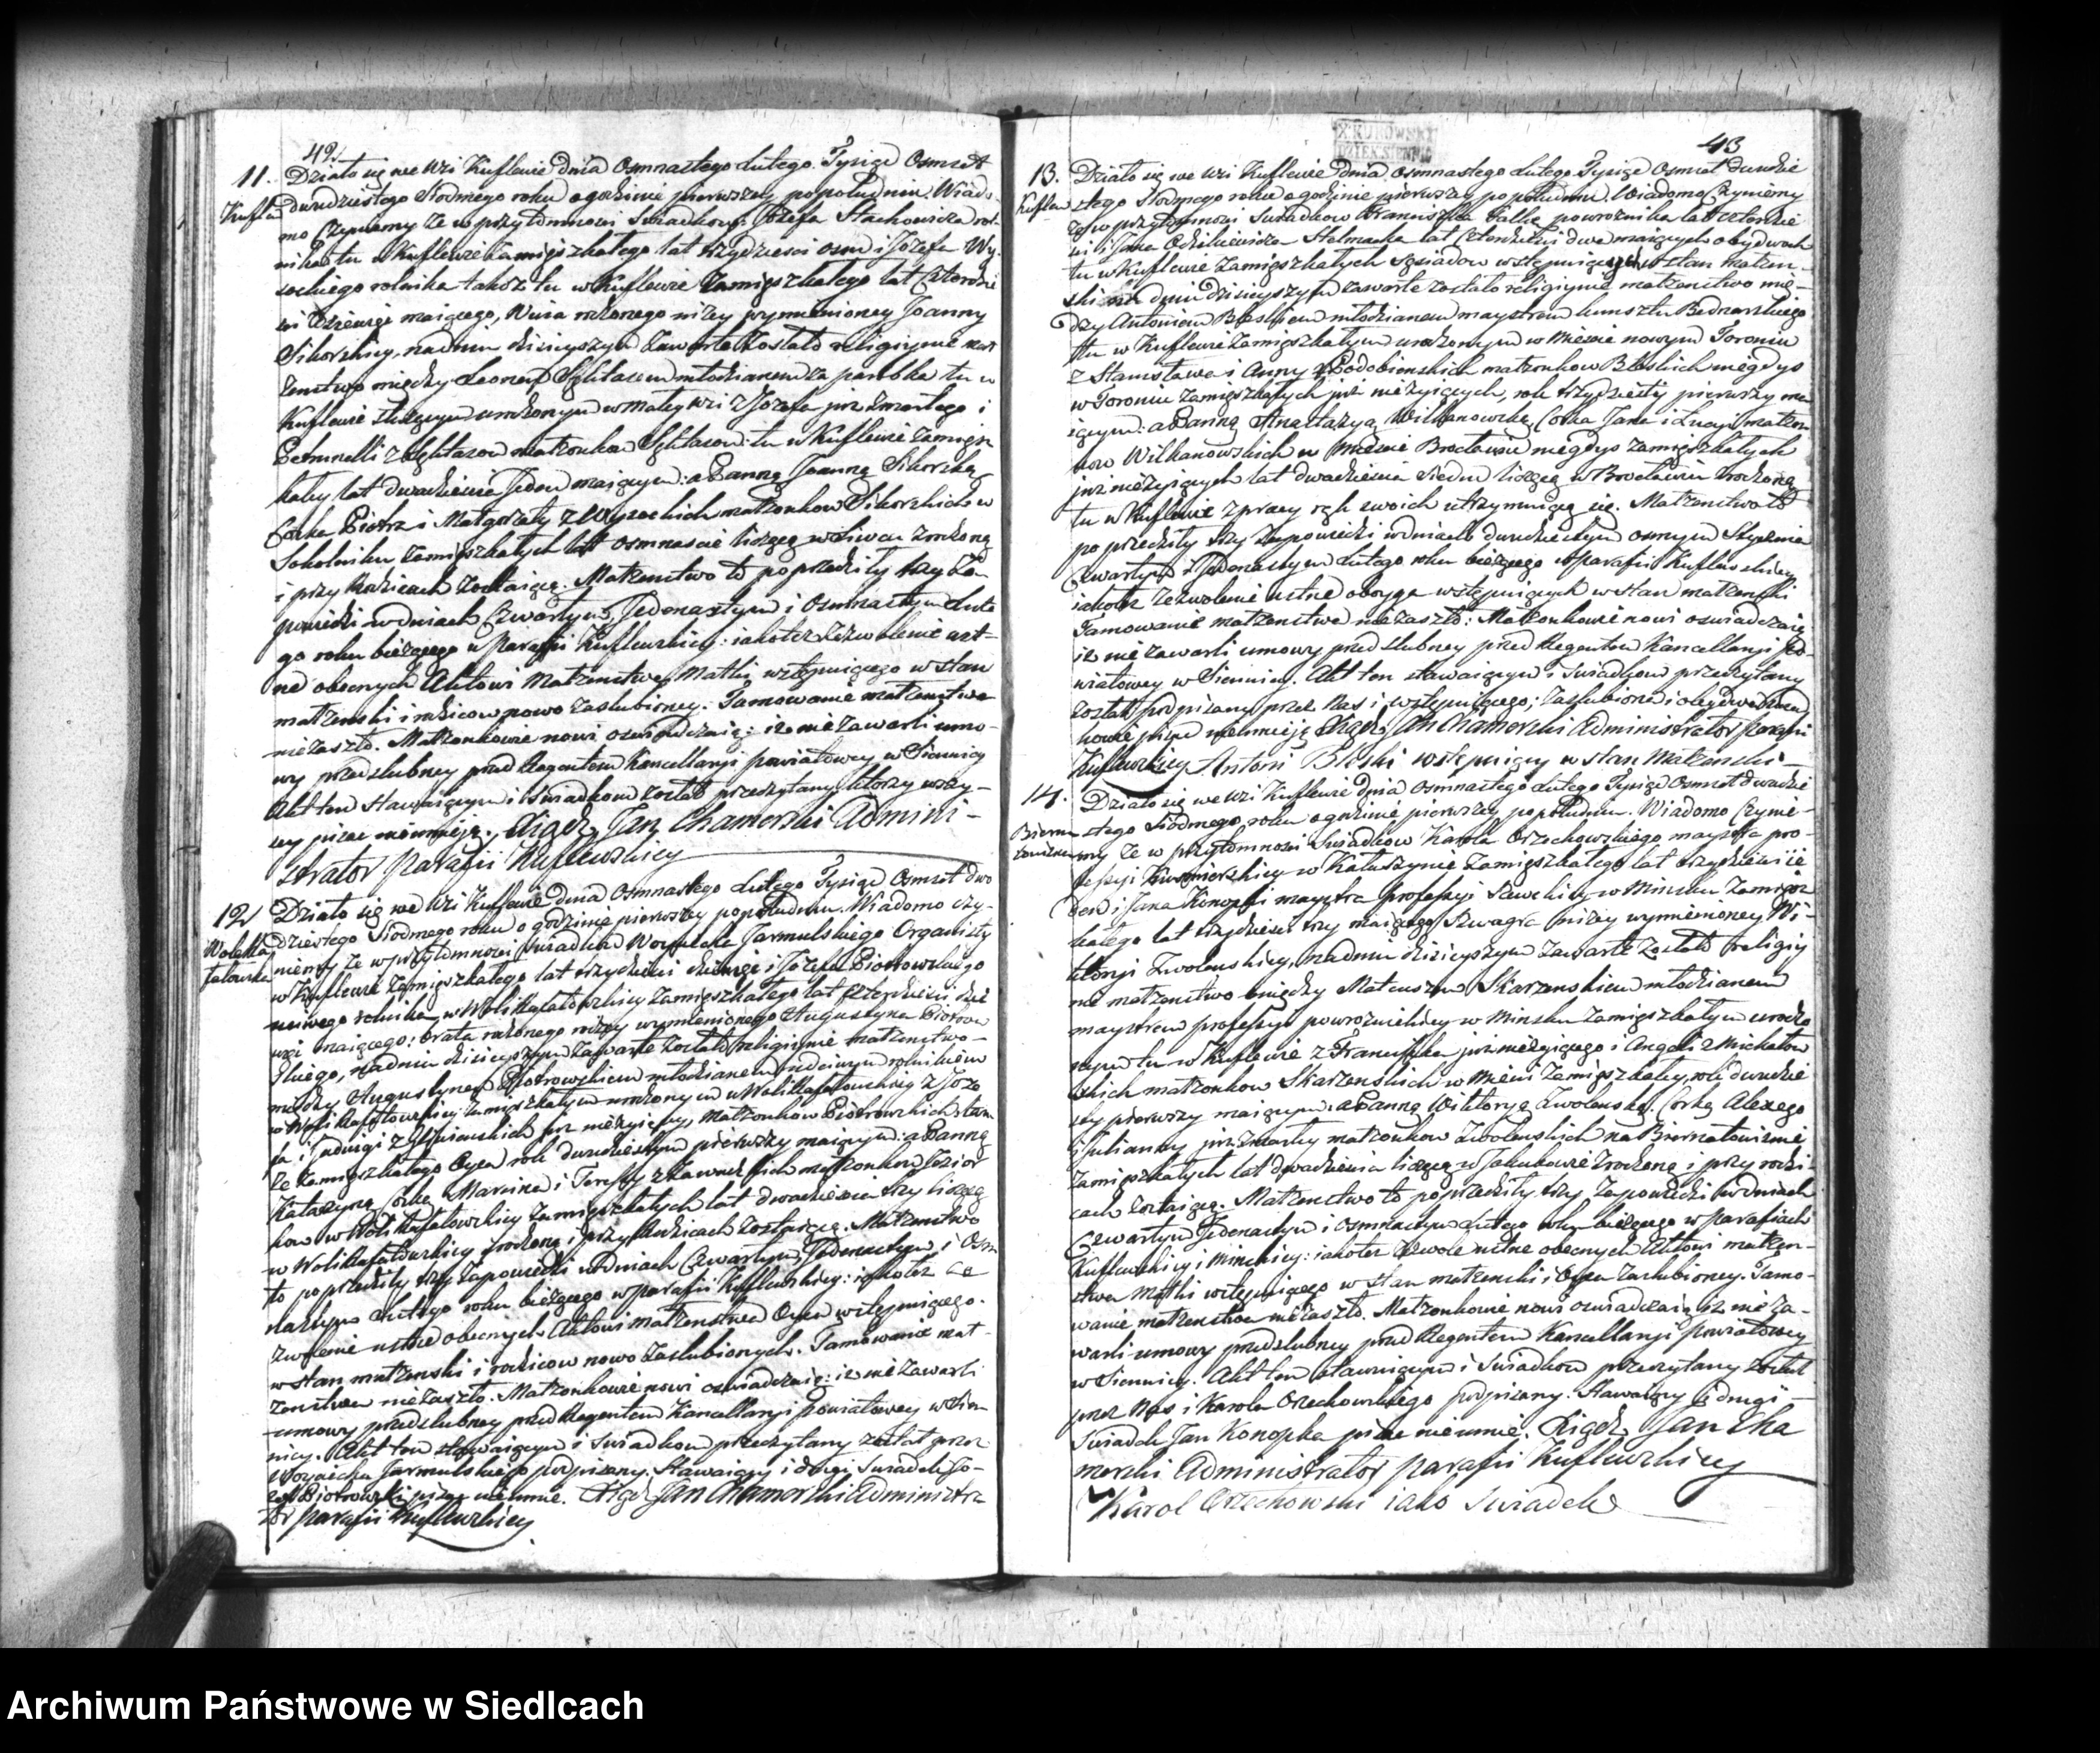 42.
11. Działo się we wsi Kuflewie dnia Osmnastego Lutego Tysiąc Osmset
Kuflew dwudziestego Siodmego roku o godzinie pierwszey popołudniu. Wiado-
mo Czyniemy że w przytomności Swiadkow Józefa Stachowicza rol-
nika tu w Kuflewie zamięszkałego lat trzydzieści osm i Józefa Wy-
sockiego rolnika także tu w Kuflewie zamięszkałego lat Czterdzie
ści dziewięć maiącego, Wuia rodzonego niżey wymienioney Joanny
Sikorskiey, na dniu dzisieyszym zawarte zostało religiyne mał
żenstwo między Leonem młodzianem za parobka tu w
Kuflewie służącym urodzonym w małey wsi z Józefa już zmarłego i
Petrunelli małżonkow tu w Kuflewie zamięsz
kałey lat dwadzieścia Jeden maiącym: a Panną Joanną Sikorską
Corką Piotra i Małgorzaty z Wysockich małżonkow Sikorskich w
Sokolniku zamięszkałych lat osmnaście liczącą w Siwcu zrodzoną
i przy Rodzicach zostaiącą. Małżenstwo to poprzedziły trzy Za-
powiedzi w dniach Czwartym, Jedenastym i Osmnastym Lute
go roku bieżącego w Parafii Kuflewskiey: iakotez zezwolenie ust-
ne obecnych Aktowi Małżenstwa Matki wstępuiącego w stan
małżenski i rodzicow nowo zaslubioney. Tamowanie małżenstwa
nie zaszło. Małżonkowie nowi oswiadczaią: iż nie zawarli umo-
wy przedslubney przed Regentem Kancellaryi powiatowey w Siennicy
Akt ten stawaiącym i Swiadkom został przeczytany ktorzy wszy-
scy pisać nieumieią. Xiądz Jan Chamerski Admini-
strator parafii Kuflewskiey
12 Działo się we wsi Kuflewie dnia Osmnastego Lutego Tysiąc Osmset dwu
Wolka dziestego Siodmego roku o godzinie pierwszey popołudniu. Wiadomo czy-
niemy że w przytomności Swiadkow Woyciecha Jarmulskiego Organisty
w Kuflewie zamięszkałego lat trzydzieści dziewięć i Józefa Piotrowskiego
rolnika w Wolikałatowskiey zamięszkałego lat Czterdzieści
maiącego: brata rodzonego niżey wymienionego Augustyna Piotrow
skiego, na dniu dzisieyszym zawarte zostało religiyne małżenstwo
między Augustynem Piotrowskim młodzianem rolnikiem
zamięszkałym urodzonym w z Józe
fa i Jadwigi z już nieżyiącey, małżonkow Piotrowskich tam
że zamięszkałego Oyca rok dwudziestym pierwszy maiącym: a Panną
Katarzyną Corką Marcina i Teressy małżonkow
kow w zamięszkałych lat dwadzieścia trzy liczącą
w zrodzoną i przy Rodzicach zostaiącą. Małżenstwo
to poprzedziły trzy zapowiedzi w dniach Czwartym, Jedenastym i Osm
nastym Lutego roku bieżącego w parafii Kuflewskiey: iakotez ze
zwolenie ustne obecnych Aktowi małżenstwa Oyca wstępuiącego
w stan małżenski i rodzicow nowo zaslubionych. Tamowanie mał-
żenstwa nie zaszło. Małżonkowie nowi oswiadczaią: iż nie zawarli
umowy przedslubney przed Regentem Kancellaryi powiatowey w Sien
nicy. Akt ten stawaiącym i Swiadkom przeczytany został przez
Woyciecha Jarmulskiego podpisany. Stawaiący i drugi Swiadek Jó-
zef Piotrowski pisać nieumie. Xiądz Jan Chamerski Administra
tor parafii Kuflewskiey
X KUROWSKI
DZIEK. SIENNIC
43
13. Działo się we wsi Kuflewie dnia osmnastego Lutego Tysiąc Osmset dwudzie
Kuflew stego Siodmego roku o godzinie pierwszey po południu. Wiadomo Czyniemy
że w przytomności Swiadkow Franciszka Falki powroznika lat czterdzie
ści i Jana Stelmacha lat Czterdzieści dwa maiących obydwoch
tu w Kuflewie zamięszkałych sąsiadow wstępuiących w stan małżen-
ski na dniu dzisieyszym zawarte zostało religiyne małżenstwo mię-
dzy Antonim Błeskim młodzianem maystrem kunsztu Bednarskiego
tu w Kuflewie zamięszkałym urodzonym w Miescie nowym Toruniu
z Stanisława i Anny z Podobienskich małżonkow Błeskich niegdys
w Toruniu zamięszkałych już nieżyiących, rok trzydziesty pierwszy ma
iącym: a Panną Anastazyą Wilkanowską, Corką Jana i Łucyi małżon
kow Wilkanowskich w Miescie Brocławiu niegdys zamięszkałych
już nieżyiących lat dwadzieścia siedm liczącą w Brocławiu zrodzoną
tu w Kuflewie z pracy rąk swoich utrzymuiącą się. Małżenstwo to
poprzedziły trzy zapowiedzi w dniach dwudziestym osmym Stycznia
Czwartym i Jedenastym Lutego roku bieżącego w parafii Kuflewskiey
iakotez zezwolenie ustne oboyga wstępuiących w stan małżenski
Tamowanie małżenstwa nie zaszło: Małżonkowie nowi oswiadczaią
iż nie zawarli umowy przedslubney przed Regentem Kancellaryi Po-
wiatowey w Siennicy. Akt ten stawaiącym i Swiadkom przeczytany
został podpisany przez Nas i wstępuiącego; zaslubiona i obydwa Swiad
kowie pisać nieumieią Xiądz Jan Chamerski Administrator parafii
Kuflewskiey Antoni Błeski wstępuiący w stan Małżenski
14. Działo się we wsi Kuflewie dnia osmnastego Lutego Tysiąc Osmset dwudzie
stego Siodmego roku o godzinie pierwszey popołudniu. Wiadomo Czynie-
my że w przytomności Swiadkow Karola Orzechowskiego maystra pro-
fessyi Kusnierskiey w Kałuszynie zamięszkałego lat trzydzieści ie
den i Jana Konopki maystra professyi Szewckiey w Minsku zamięsz
kałego lat trzydzieści trzy maiącego Szwagra niżey wymienioney Wi-
ktoryi Zwolenskiey, na dniu dzisieyszym zawarte zostało religiy
ne małżenstwo między Mateuszem Skarzenskim młodzianem
maystrem professyi powroznickiey w Minsku zamięszkałym urodzo
nym tu w Kuflewie z Franciszka już nieżyiącego i Angeli z Michałow
skich małżonkow Skarzenskich w Mieni zamięszkałey, rok dwudzie
sty pierwszy maiącym: a Panną Wiktoryą Zwolenską, Corką Alexego
i Julianny już zmarłey małżonkow Zwolenskich na Biernatowiznie
zamięszkałych lat dwadzieścia liczącą w Jakubowie zrodzoną i przy rodzi-
cach zostaiącą. Małżenstwo to poprzedziły trzy zapowiedzi w dniach
Czwartym Jedenastym i osmnastym Lutego roku bieżącego w parafiach
Kuflewskiey i Minskiey: iakotez zezwole ustne obecnych Aktowi małżen-
stwa Matki wstępuiącego w stan małżenski i Oyca zaslubioney. Tamo-
wanie małżenstwa nie zaszło. Małżonkowie nowi oswiadczaią iż nie za-
warli umowy przedslubney przed Regentem Kancellaryi powiatowey
w Siennicy. Akt ten stawaiącym i Swiadkom przeczytany został
przez Nas i Karola Orzechowskiego podpisany. Stawaiący i drugi
Swiadek Jan Konopka pisać nieumie. Xiądz Jan Cha
merski Administrator parafii Kuflewskiey
Karol Orzechowski iako Swiadek
Archiwum Państwowe w Siedlcach